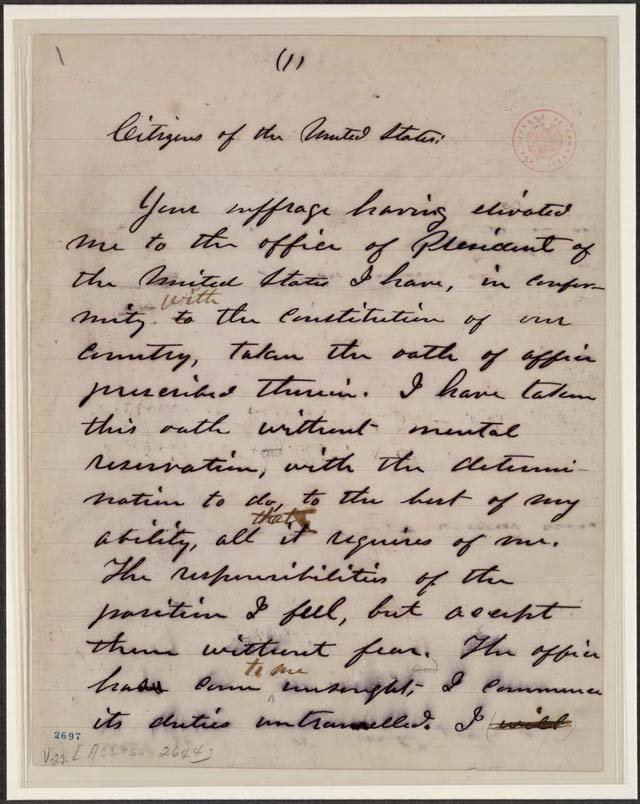 \
(1)
Citizens of the United States:
Your suffrage having elivated
me to the office of President of
the United States I have, in confor-
with
mity to the Constitution of our
Country, taken the oath of office
prescribed therein. I have taken
this oath without mental
reservation, with the determi-
nation to do, to the best of my
that
ability, all it requires of me.
The responsibilities of the
position I feel, but accept
them without fear. The office
to me
has come unsought; I commence
its duties untramelled. I will
2697
V.22 [Access 2644]